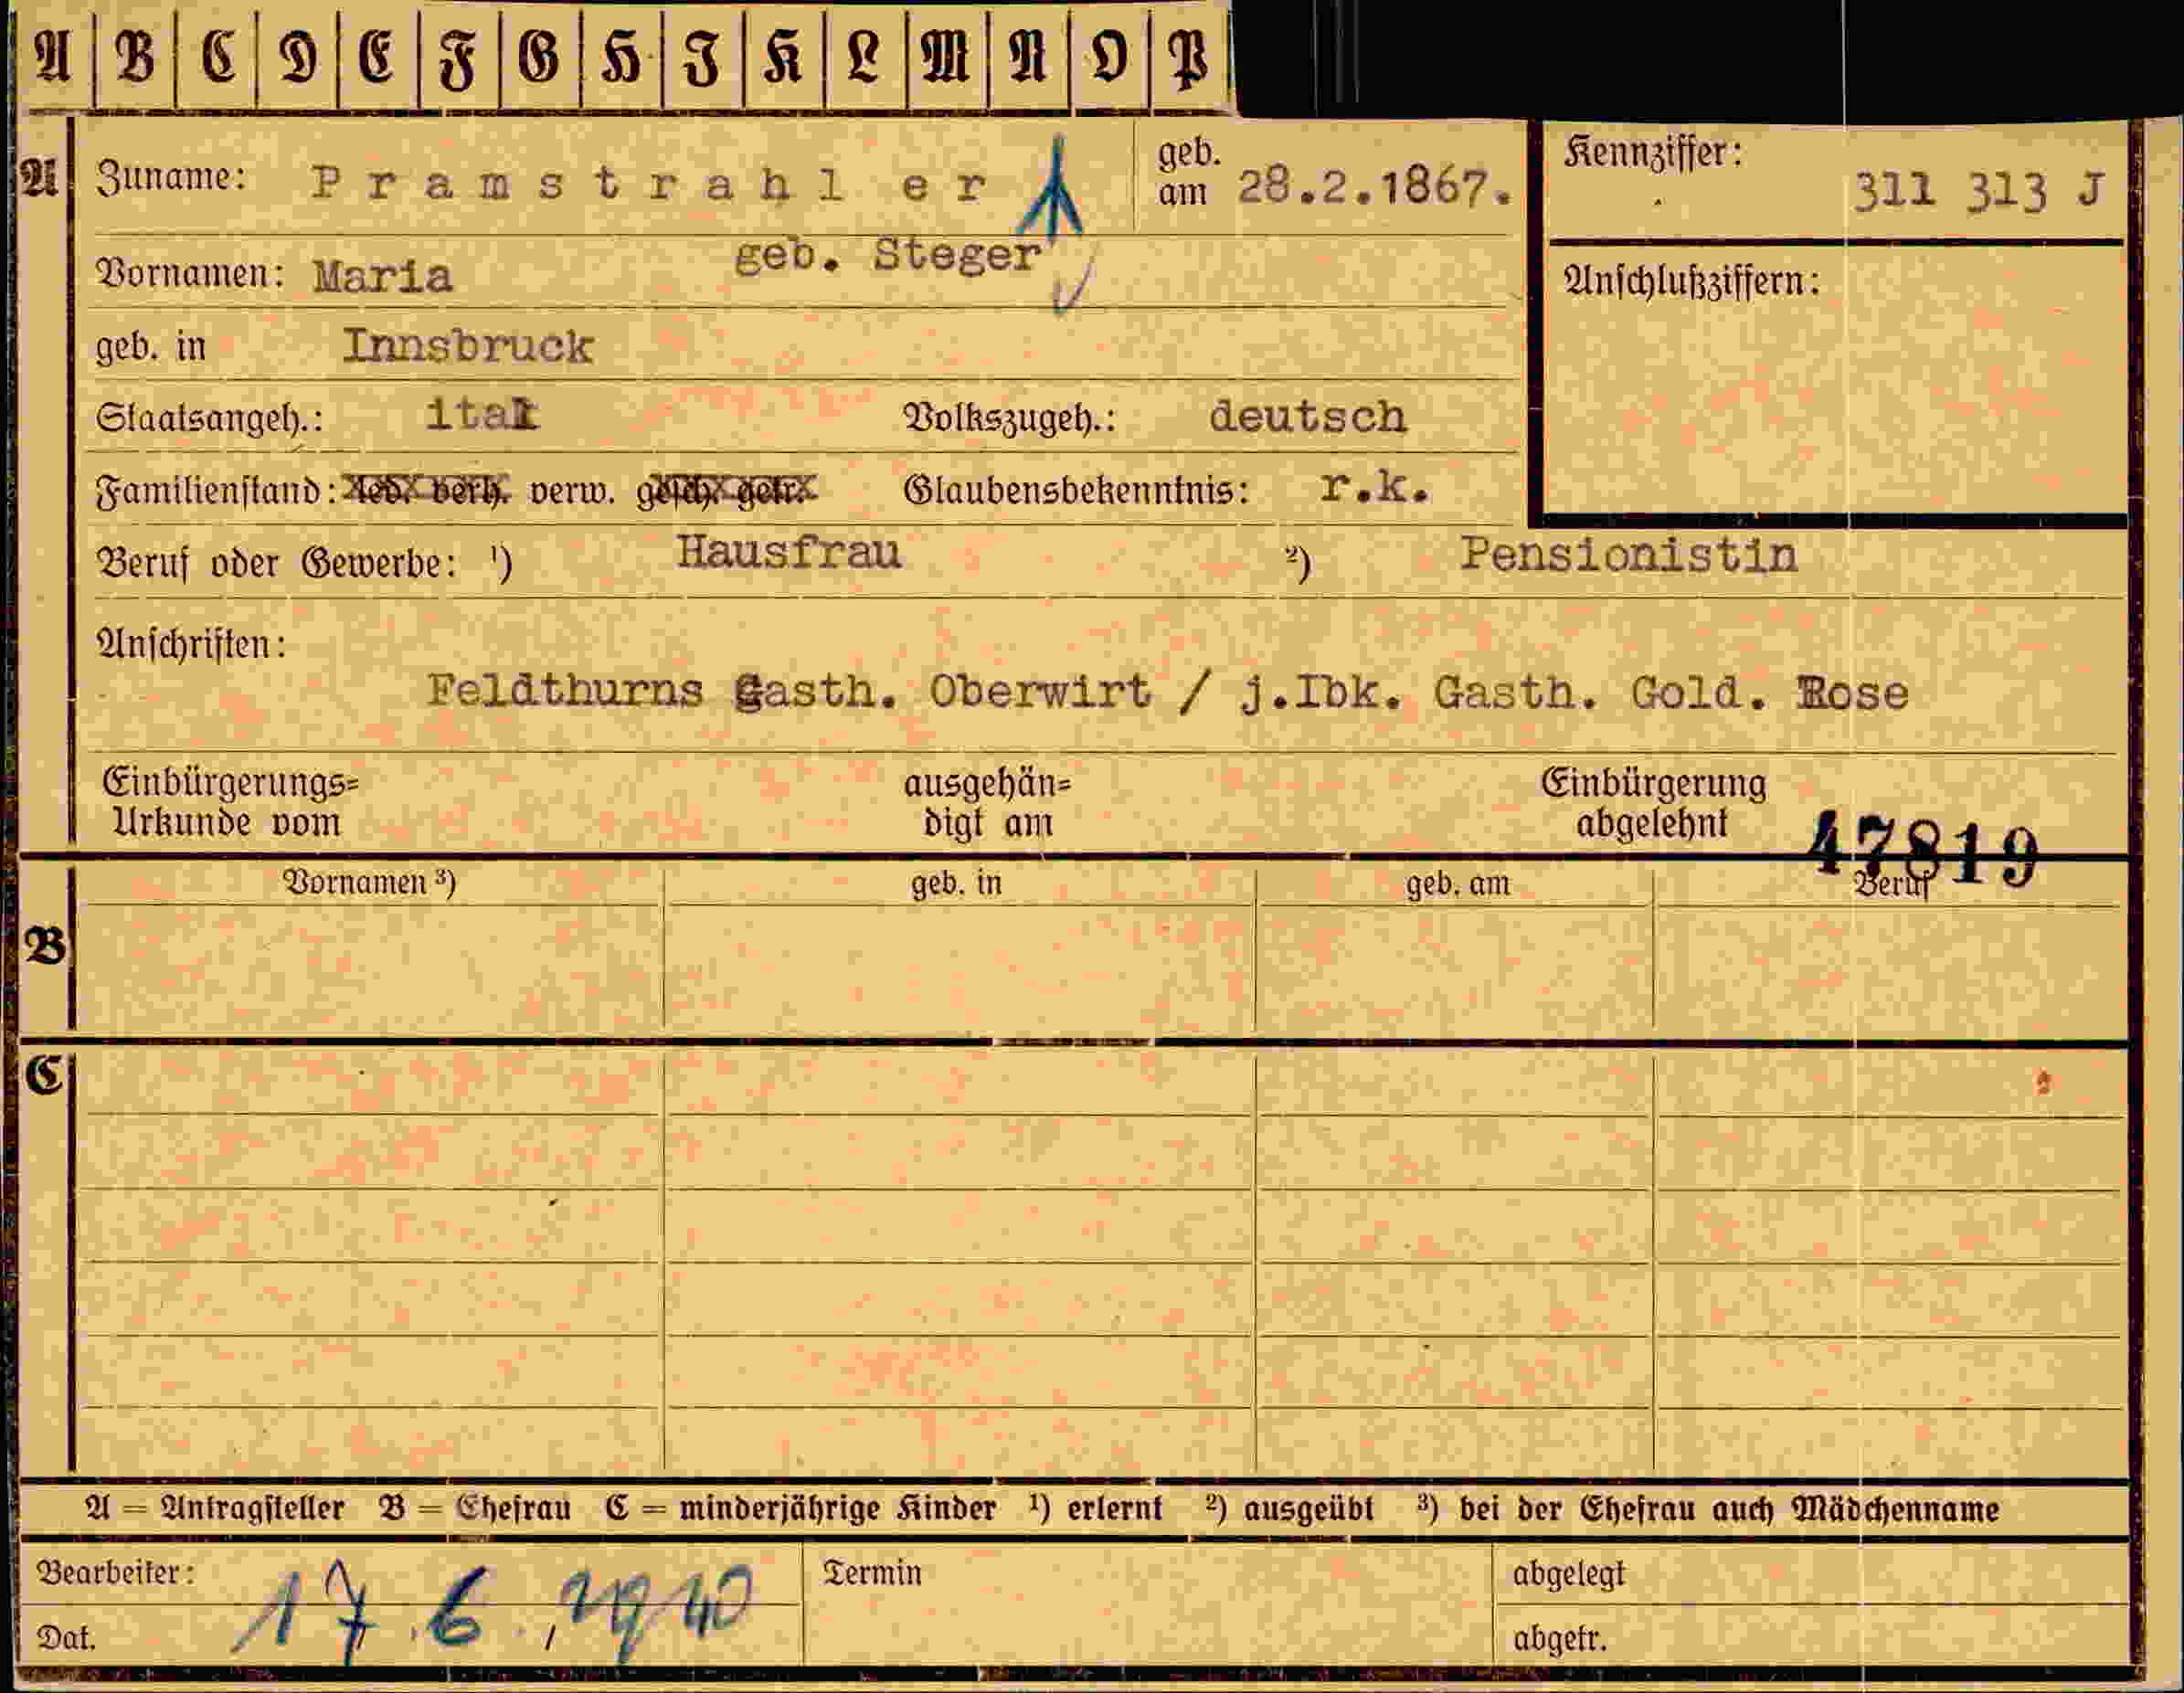 A B C D E F G H I K L M N O P
A Zuname: Pramstrahler geb. am 28.2.1867. Kennziffer: 311 313 J
geb. Steger
Vornamen: Maria Anschlußziffern:
geb. in Innsbruck
Staatsangeh.: ital Volkszugeh.: deutsch
Familienstand: led. verh. verw. gesch. getr. Glaubensbekenntnis: r.k.
Beruf oder Gewerbe: ¹) Hausfrau ²) Pensionistin
Anschriften:
Feldthurns Gasth. Oberwirt / j.Ibk. Gasth. Gold. Rose
Einbürgerungs= ausgehän= Einbürgerung
Urkunde vom digt am abgelehnt 47819
Vornamen ³) geb. in geb. am Beruf
B
C
A = Antragsteller B = Ehefrau C = minderjährige Kinder ¹) erlernt ²) ausgeübt ³) bei der Ehefrau auch Mädchenname
Bearbeiter: Termin abgelegt
Dat. 17.6. 1940 abgetr.